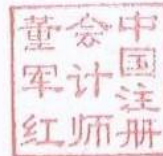 中国注册
会计师
董军红